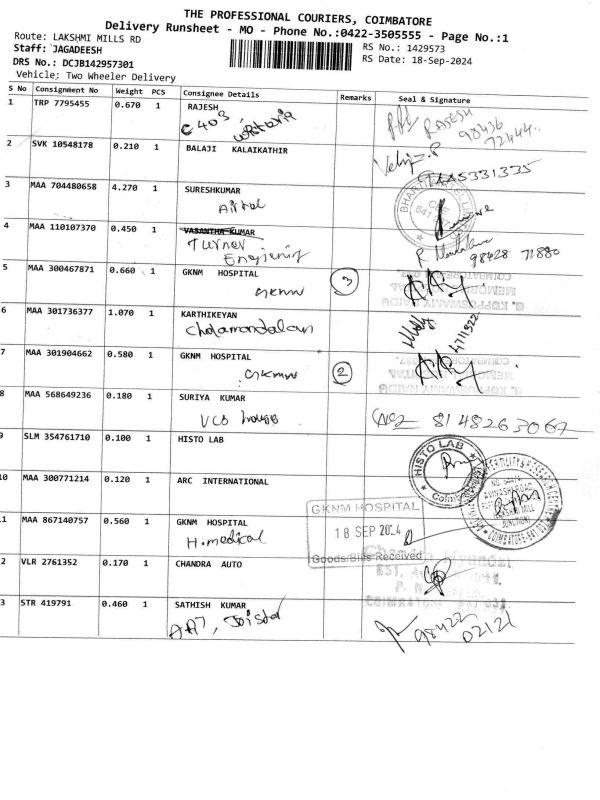 THE PROFESSIONAL COURIERS, COIMBATORE
Delivery Runsheet - MO - Phone No.:0422-3505555 - Page No.:1
Route: LAKSHMI MILLS RD
RS No.: 1429573
Staff: JAGADEESH
RS Date: 18-Sep-2024
DRS No.: DCJB142957301
Vehicle; Two Wheeler Delivery
S No Consignment No Weight PCS Consignee Details Remarks Seal & Signature
1 TRP 7795455 0.670 1 RAJESH
C 403,
RAJESH
98436
72444
2 SVK 10548178 0.210 1 BALAJI KALAIKATHIR
3 MAA 704480658 4.270 1 SURESHKUMAR
Airtel
4 MAA 110107370 0.450 1 VASANTHA KUMAR
Turner
98428 71880
5 MAA 300467871 0.660 1 GKNM HOSPITAL
gknm
3
6 MAA 301736377 1.070 1 KARTHIKEYAN
Cholamandalam
7 MAA 301904662 0.580 1 GKNM HOSPITAL
2
8 MAA 568649236 0.180 1 SURIYA KUMAR
VCS house
8148263067
9 SLM 354761710 0.100 1 HISTO LAB
HISTO LAB
10 MAA 300771214 0.120 1 ARC INTERNATIONAL
GKNM HOSPITAL
18 SEP 2024
Goods/Bills Received
11 MAA 867140757 0.560 1 GKNM HOSPITAL
H.medical
2 VLR 2761352 0.170 1 CHANDRA AUTO
3 STR 419791 0.460 1 SATHISH KUMAR
98422
02121